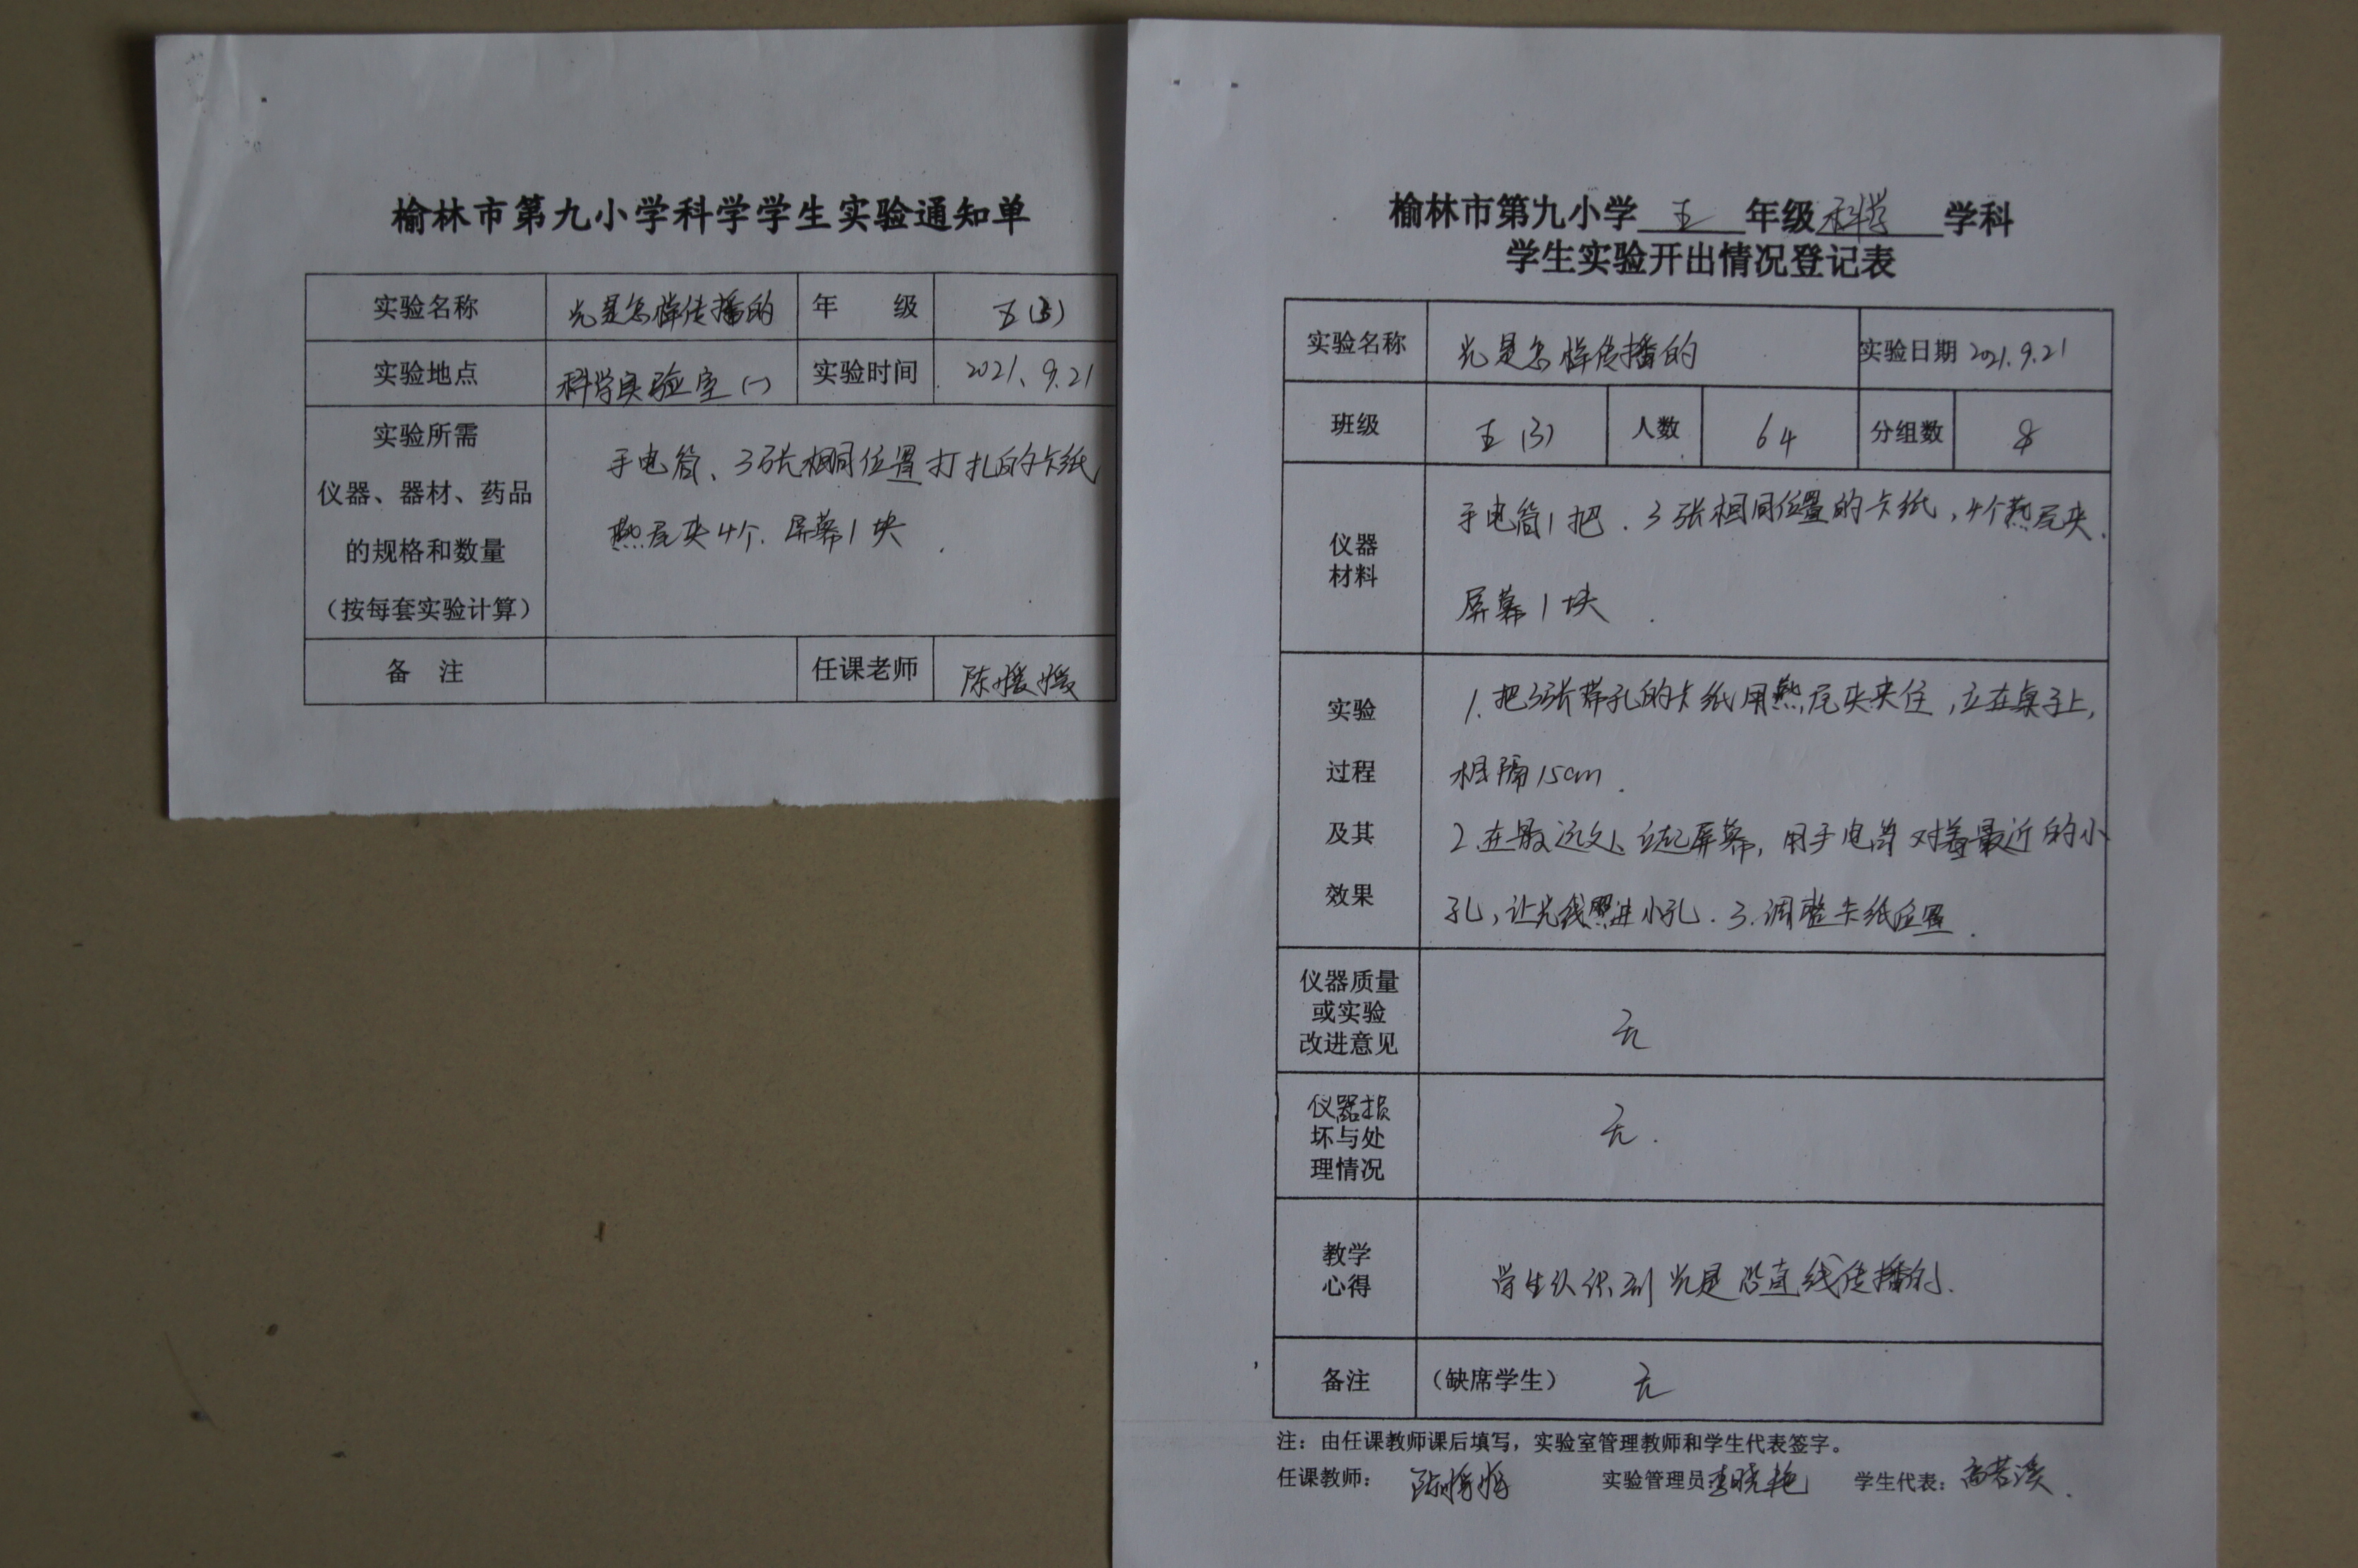 榆林市第九小学科学学生实验通知单
实验名称 光是怎样传播的 年 级 五(3)
实验地点 科学实验室(一) 实验时间 2021、9.21
实验所需
仪器、器材、药品
的规格和数量
(按每套实验计算)
手电筒、3张相同位置打孔的卡纸
燕尾夹4个、屏幕1块.
备 注 任课老师 陈媛媛
榆林市第九小学 五 年级 科学 学科
学生实验开出情况登记表
实验名称 光是怎样传播的 实验日期 2021.9.21
班级 五(3) 人数 64 分组数 8
仪器
材料
手电筒1把.3张相同位置的卡纸,4个燕尾夹.
屏幕1块.
实验
过程
及其
效果
1.把3张带孔的卡纸用燕尾夹夹住,立在桌子上,
相隔15cm.
2.在最远处立起屏幕,用手电筒对着最近的小
孔,让光线照进小孔.3.调整卡纸位置.
仪器质量
或实验
改进意见
无
仪器损
坏与处
理情况
无.
教学
心得
学生认识到光是沿直线传播的.
备注 (缺席学生) 无
注:由任课教师课后填写,实验室管理教师和学生代表签字。
任课教师: 陈媛媛 实验管理员:李晓艳 学生代表:高若溪.